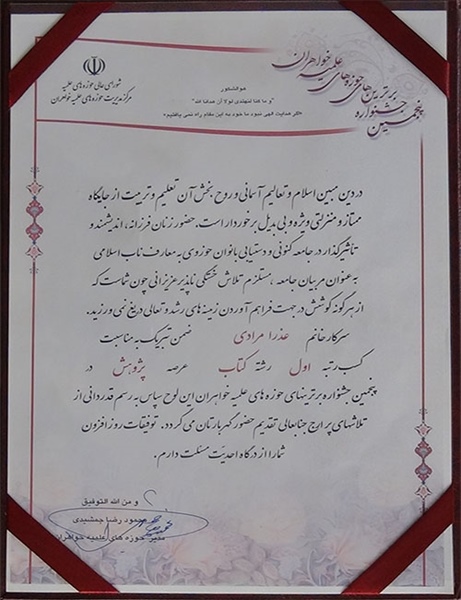 پنجمین جشنواره برترین‌های حوزه‌های علمیه خواهران
شورای عالی حوزه های علمیه
مرکز مدیریت حوزه های علمیه خواهران
هوالشکور
"و ما کنا لنهتدی لولا أن هدانا الله"
«گر هدایت الهی نبود ما خود به این مقام راه نمی یافتیم»
در دین مبین اسلام و تعالیم آسمانی و روح بخش آن تعلیم و تربیت از جایگاه
ممتاز و منزلتی ویژه و بی بدیل برخوردار است. حضور زنان فرزانه، اندیشمند و
تاثیرگذار در جامعه کنونی و دستیابی بانوان حوزوی به معارف ناب اسلامی
به عنوان مربیان جامعه، مستلزم تلاش خستگی ناپذیر عزیزانی چون شماست که
از هر گونه کوشش در جهت فراهم آوردن زمینه های رشد و تعالی دریغ نمی ورزید.
سرکار خانم عذرا مرادی ضمن تبریک به مناسبت
کسب رتبه اول رشته کتاب عرصه پژوهش در
پنجمین جشنواره برترینهای حوزه های علمیه خواهران این لوح سپاس به رسم قدردانی از
تلاشهای پر ارج جنابعالی تقدیم حضور گهربارتان می گردد. توفیقات روز افزون
شما را از درگاه احدیّت مسئلت دارم.
و من الله التوفیق
محمود رضا جمشیدی
مدیر حوزه های علمیه خواهران